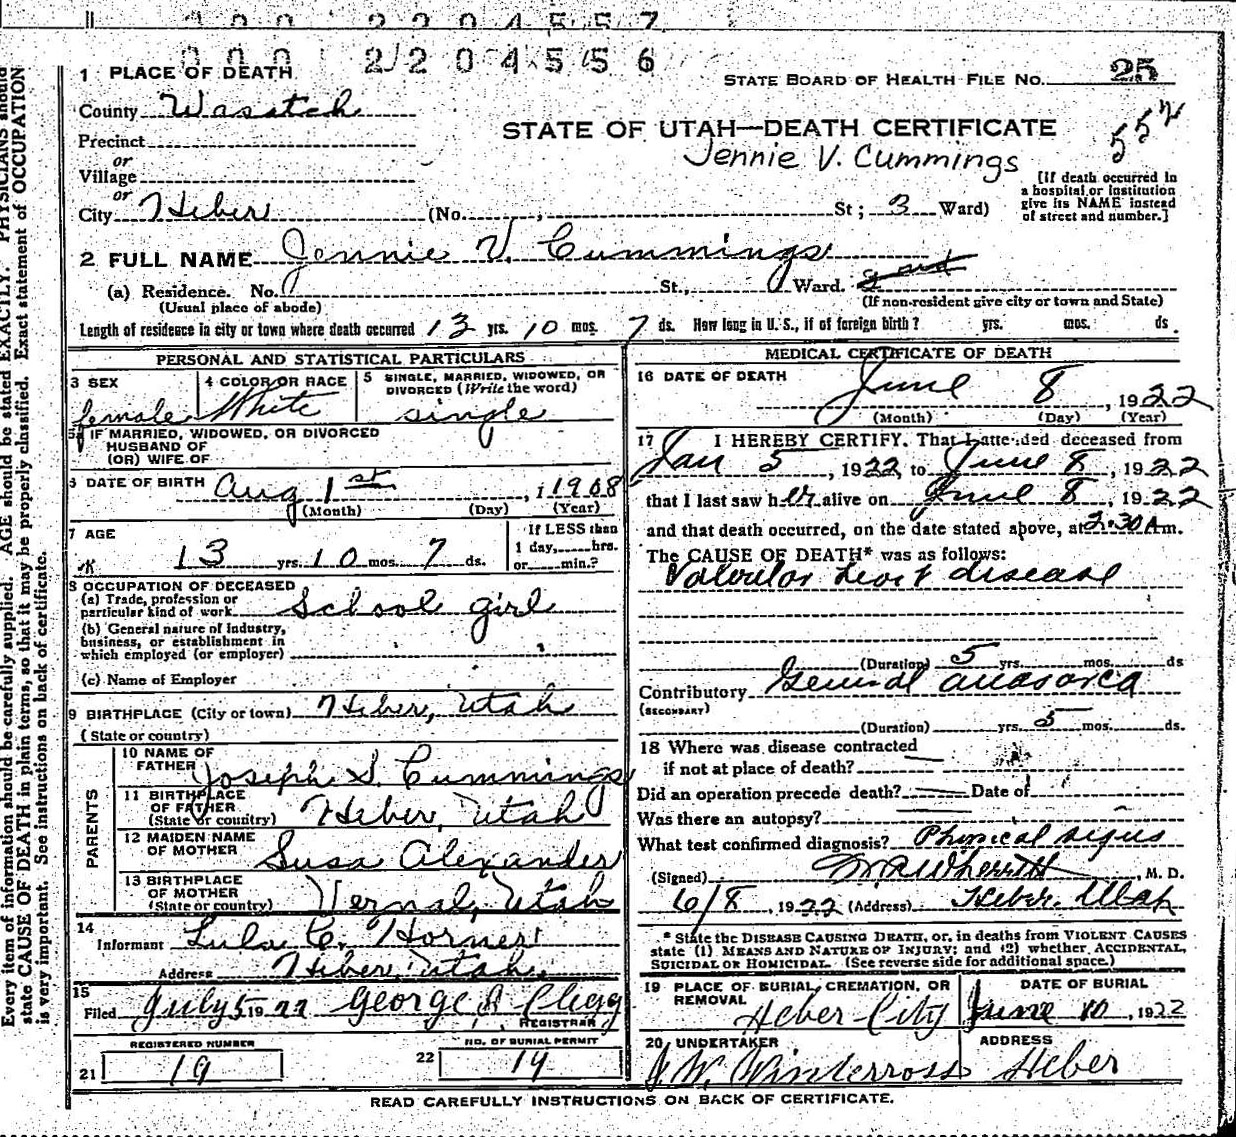 000 2204557
000 2204556
1 PLACE OF DEATH
STATE BOARD OF HEALTH FILE No. 25
County Wasatch
552
STATE OF UTAH—DEATH CERTIFICATE
Precinct
Jennie V. Cummings
or
Village
or
City Heber (No. , St; 3 Ward)
[If death occurred in
a hospital or institution
give its NAME instead
of street and number.]
2 FULL NAME Jennie V. Cummings
(a) Residence. No. St., Ward.
(Usual place of abode) (If non-resident give city or town and State)
Length of residence in city or town where death occurred 13 yrs. 10 mos. 7 ds. How long in U. S., if of foreign birth? yrs. mos. ds.
PERSONAL AND STATISTICAL PARTICULARS
3 SEX 4 COLOR OR RACE 5 SINGLE, MARRIED, WIDOWED, OR
DIVORCED (Write the word)
female White single
IF MARRIED, WIDOWED, OR DIVORCED
HUSBAND OF
(OR) WIFE OF
6 DATE OF BIRTH Aug 1st , 1908
(Month) (Day) (Year)
7 AGE If LESS than
13 yrs. 10 mos. 7 ds. 1 day, hrs.
or min.?
8 OCCUPATION OF DECEASED
(a) Trade, profession or
particular kind of work School girl
(b) General nature of Industry,
business, or establishment in
which employed (or employer)
(c) Name of Employer
9 BIRTHPLACE (City or town) Heber, Utah
(State or country)
PARENTS
10 NAME OF
FATHER Joseph S. Cummings
11 BIRTHPLACE
OF FATHER
(State or country) Heber, Utah
12 MAIDEN NAME
OF MOTHER Susa Alexander
13 BIRTHPLACE
OF MOTHER
(State or country) Vernal, Utah
14
Informant Lula C. Horner
Address Heber Utah.
15
Filed July 5 1922 George A Clegg
REGISTRAR
REGISTERED NUMBER NO. OF BURIAL PERMIT
21 19 22 19
MEDICAL CERTIFICATE OF DEATH
16 DATE OF DEATH
June 8 , 1922
(Month) (Day) (Year)
17 I HEREBY CERTIFY. That I attended deceased from
Jan 5 , 1922 to June 8 , 1922
that I last saw her alive on June 8 , 1922
and that death occurred, on the date stated above, at 2.30 A m.
The CAUSE OF DEATH* was as follows:
Valvular heart disease
(Duration) 5 yrs. mos. ds
Contributory General anasarca
(SECONDARY)
(Duration) yrs. 5 mos. ds.
18 Where was disease contracted
if not at place of death?
Did an operation precede death? Date of
Was there an autopsy?
What test confirmed diagnosis? Physical signs
(Signed) , M. D.
6/8 , 1922 (Address) Heber. Utah
* State the DISEASE CAUSING DEATH, or, in deaths from VIOLENT CAUSES
state (1) MEANS AND NATURE OF INJURY; and (2) whether ACCIDENTAL,
SUICIDAL OR HOMICIDAL. (See reverse side for additional space.)
19 PLACE OF BURIAL, CREMATION, OR
REMOVAL DATE OF BURIAL
Heber City June 10 , 1922
20 UNDERTAKER ADDRESS
J. W. Winterross Heber
READ CAREFULLY INSTRUCTIONS ON BACK OF CERTIFICATE.
Every item of information should be carefully supplied. AGE should be stated EXACTLY. PHYSICIANS should
state CAUSE OF DEATH in plain terms, so that it may be properly classified. Exact statement of OCCUPATION
is very important. See instructions on back of certificate.